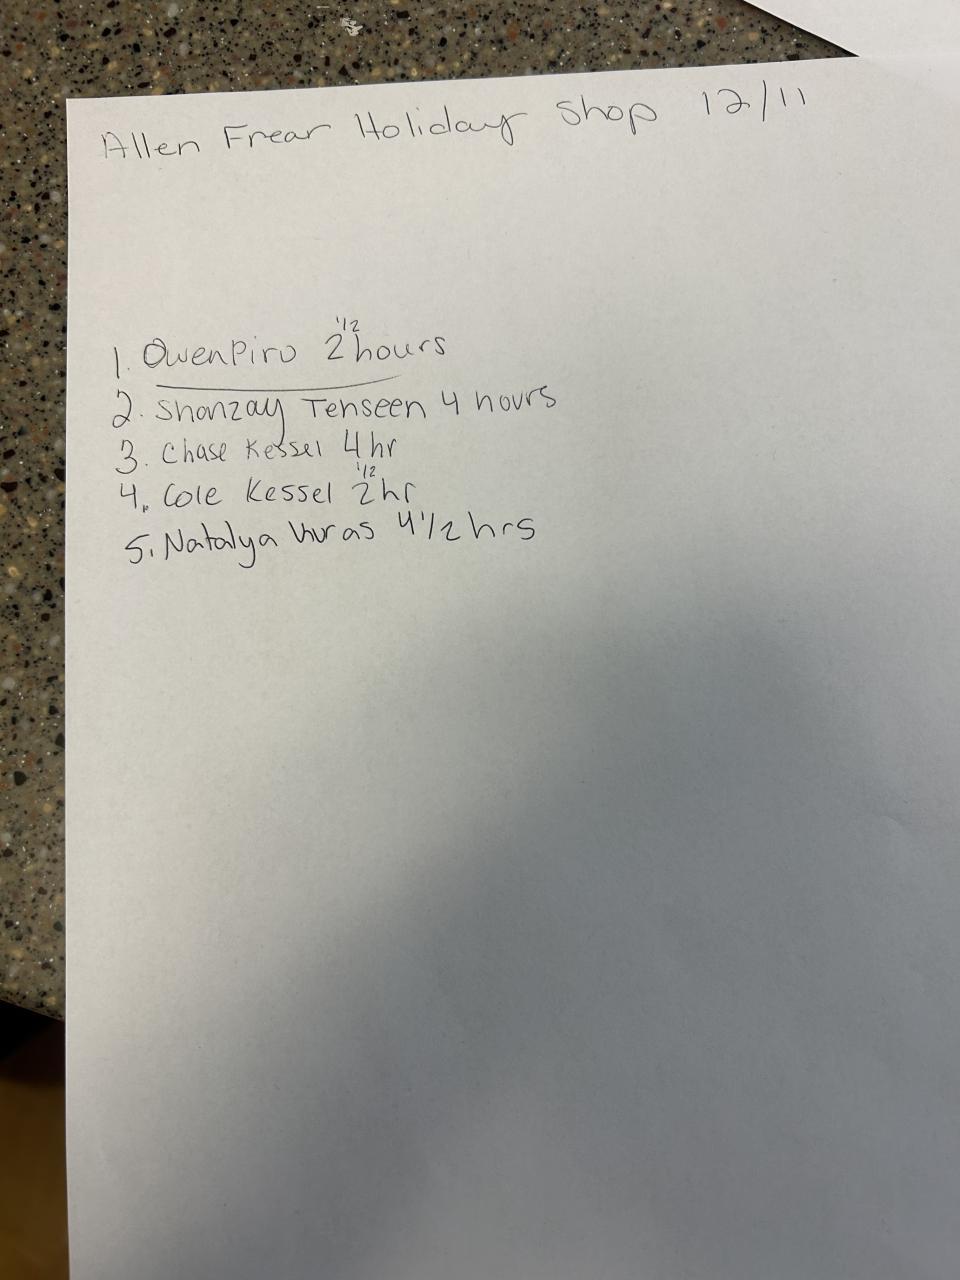 Allen Frear Holiday Shop 12/11
1. Owen Piro 2 1/2 hours
2. Shanzay Tehseen 4 hours
3. Chase Kessel 4 hr
4. Cole Kessel 2 1/2 hr
5. Natalya Kuras 4 1/2 hrs